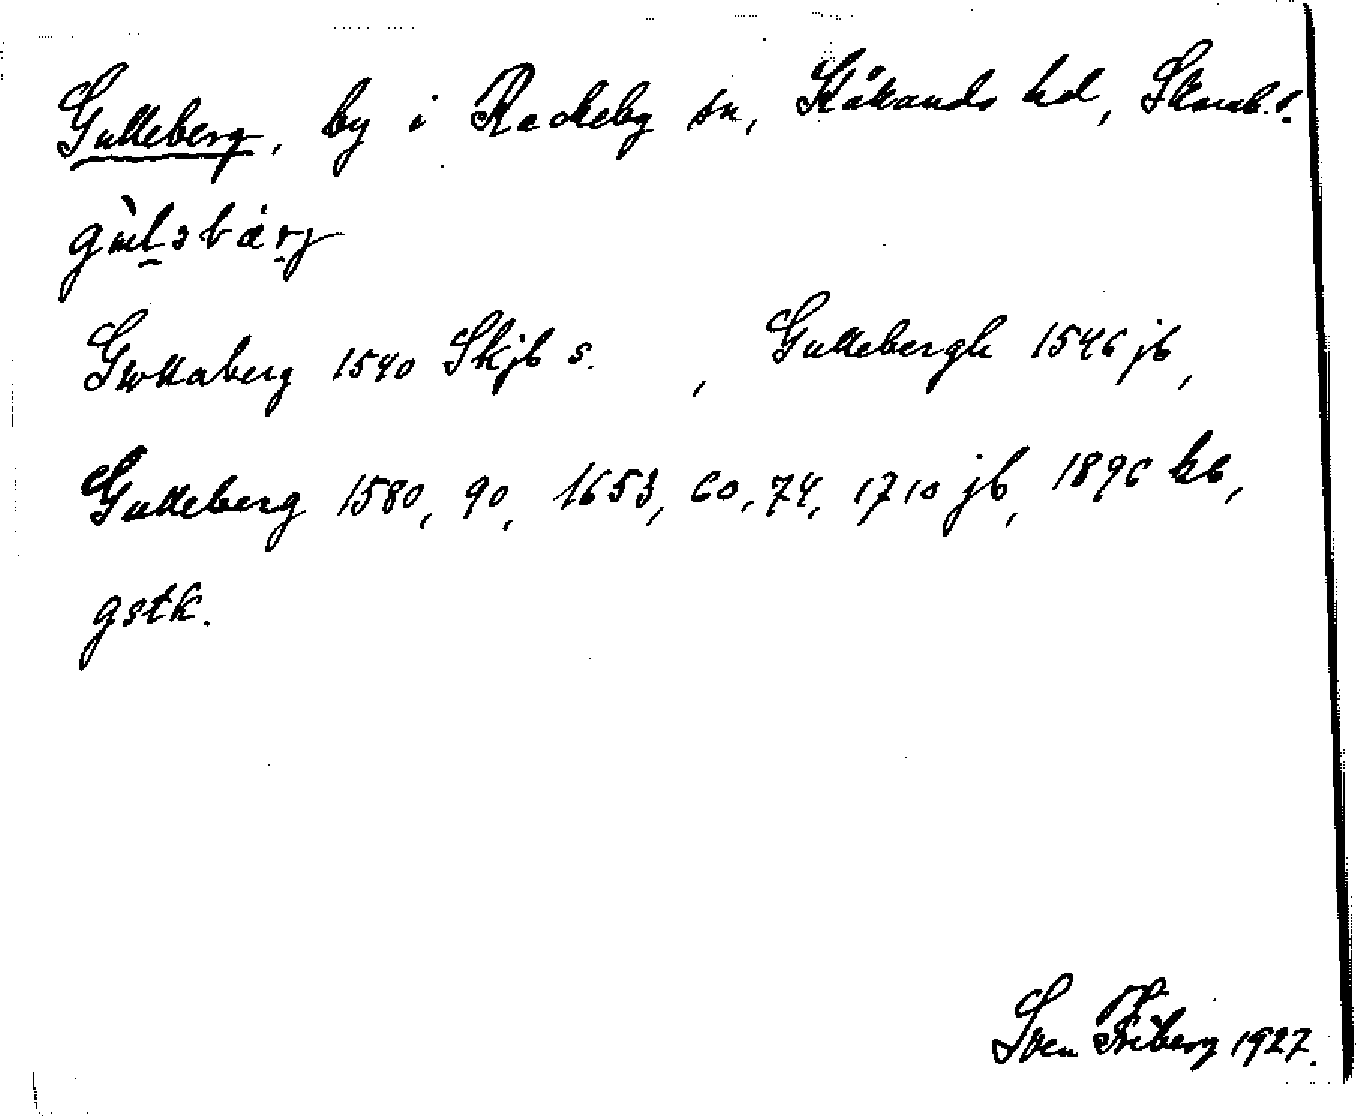 Gulleberg, by i Rackeby sn, Kållands hd, Skarab. l.
gùl̠əbár̠j
Gwllaberg 1540 Skjb s. , Gullebergh 1546 jb,
Gulleberg 1580, 90, 1653, 60, 74, 1710 jb, 1896 kb,
gstk.
Sven Friberg 1927.